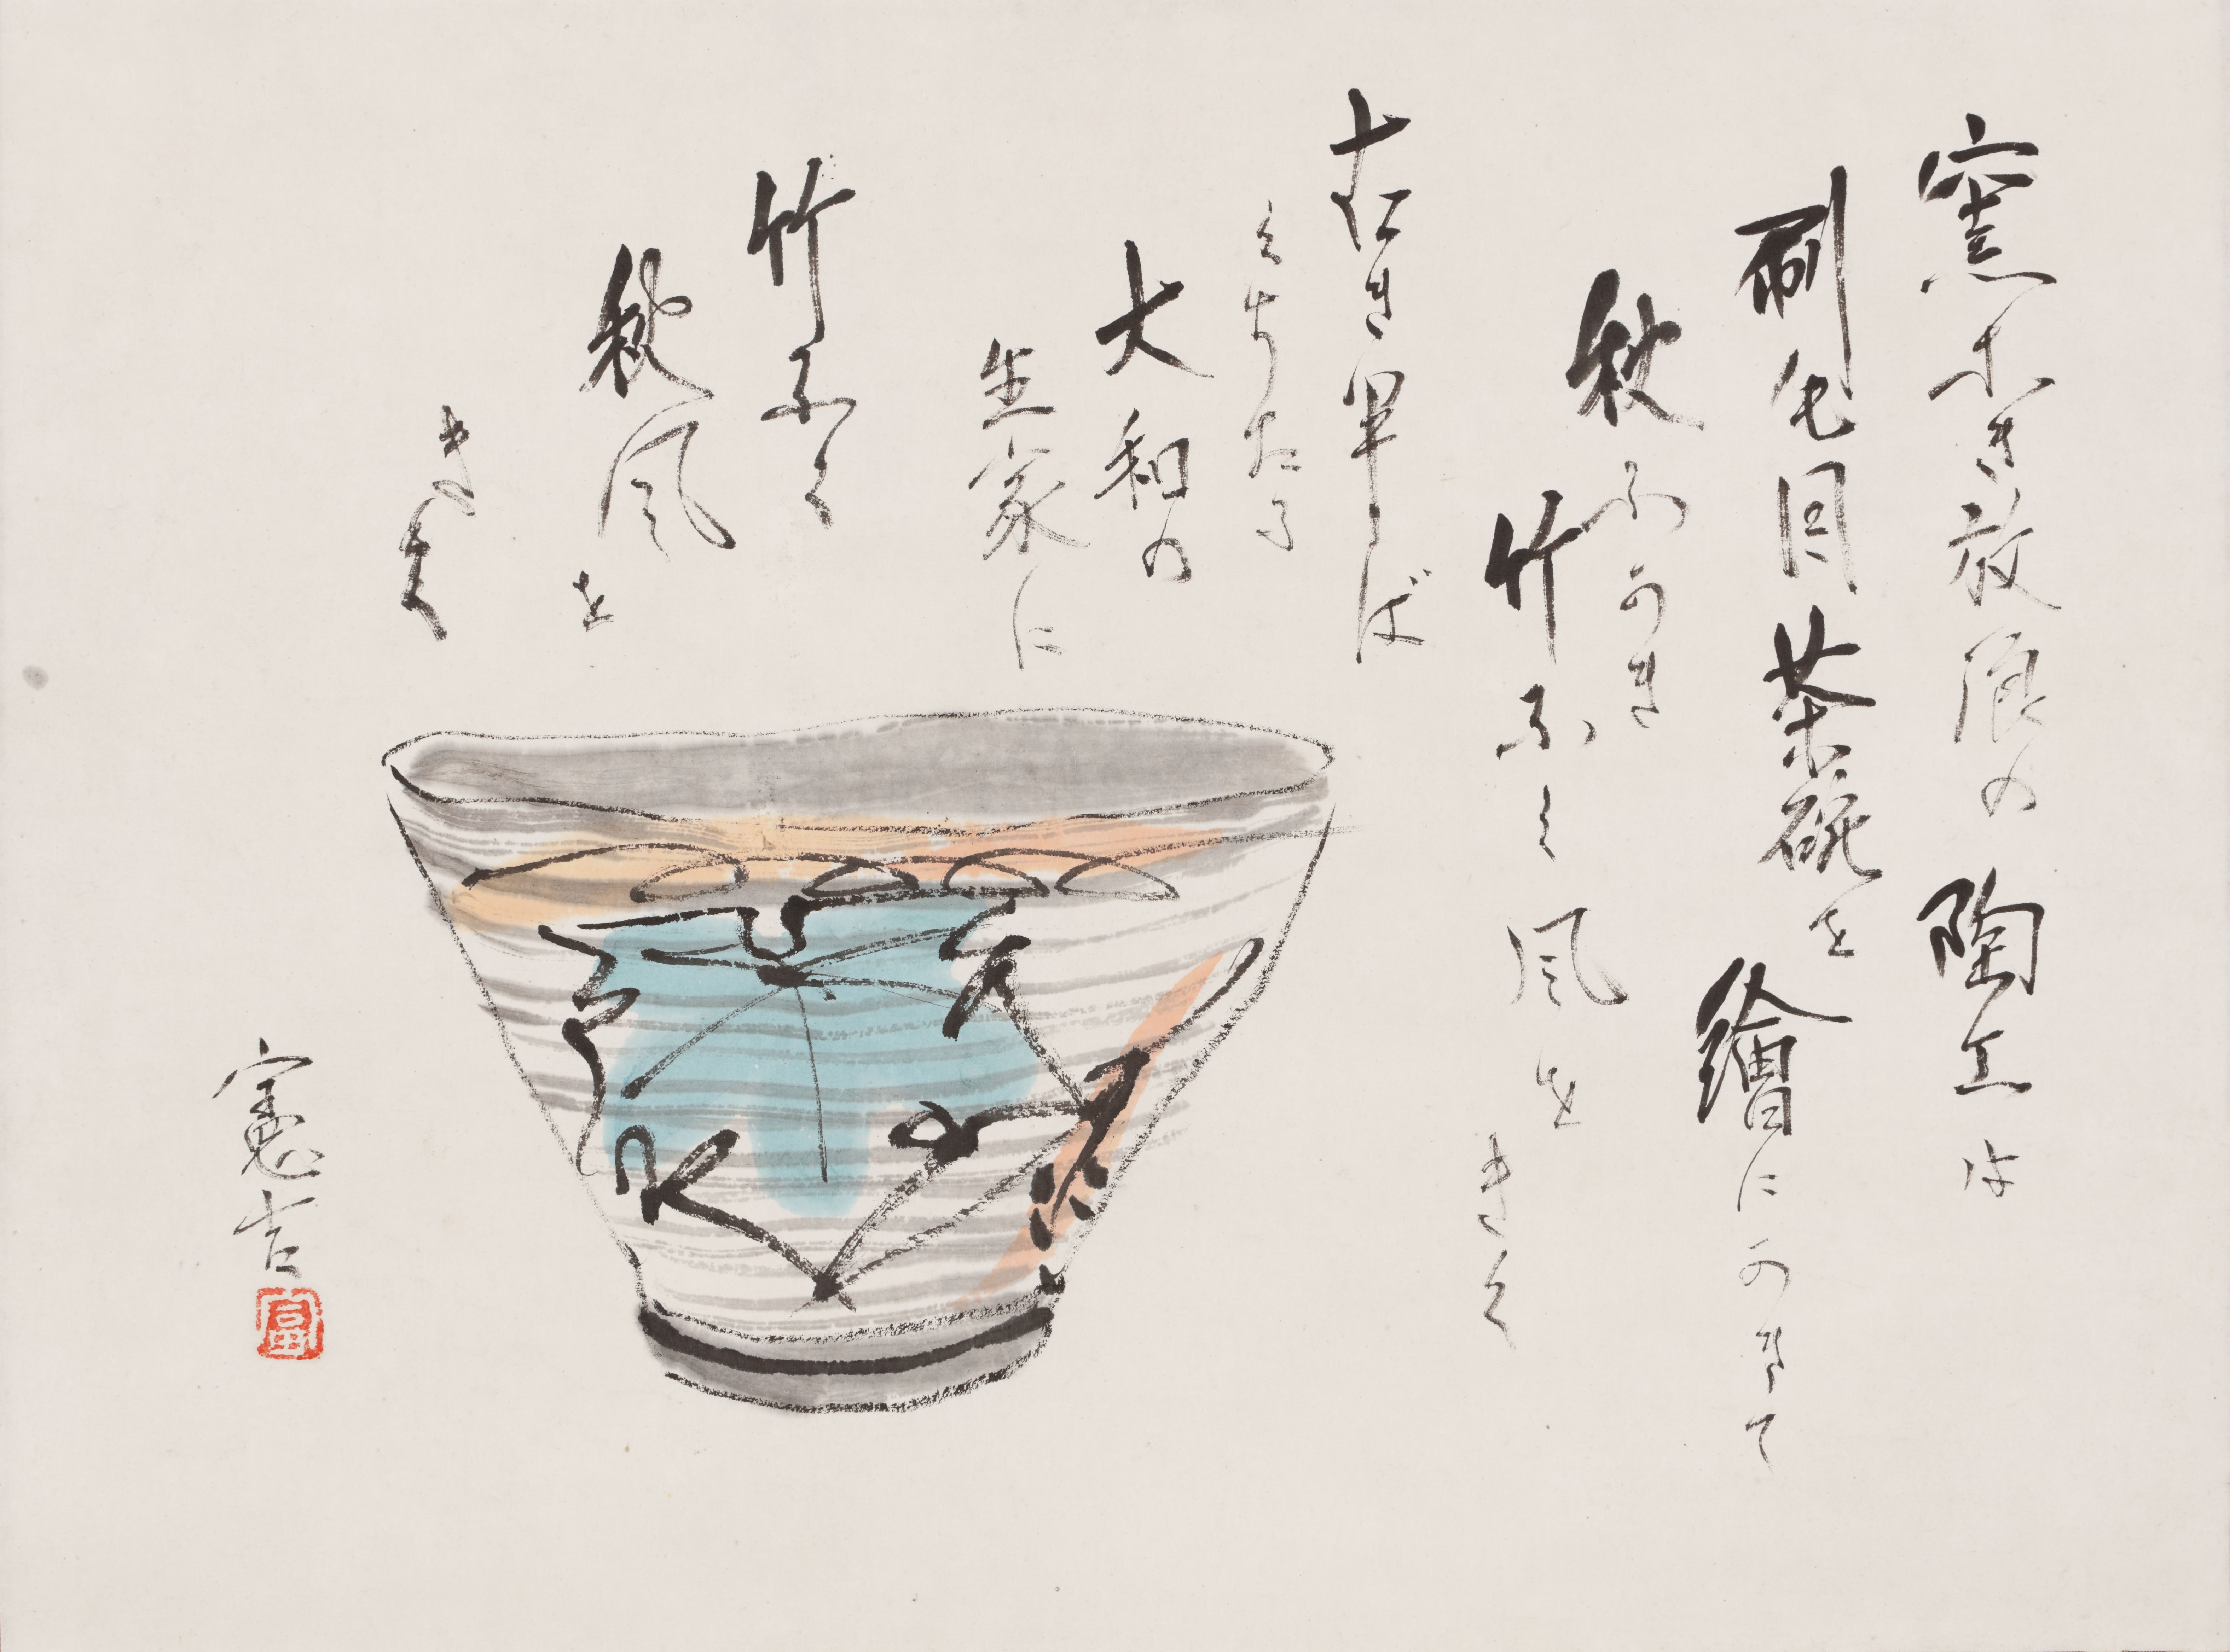 窯なき放浪の陶工は
刷毛目茶碗を
繪にかきて
秋ふかき
竹ふく風を
きく
古き
くちたる
大和の
生家に
竹ふく
秋風を
きく
憲吉
富